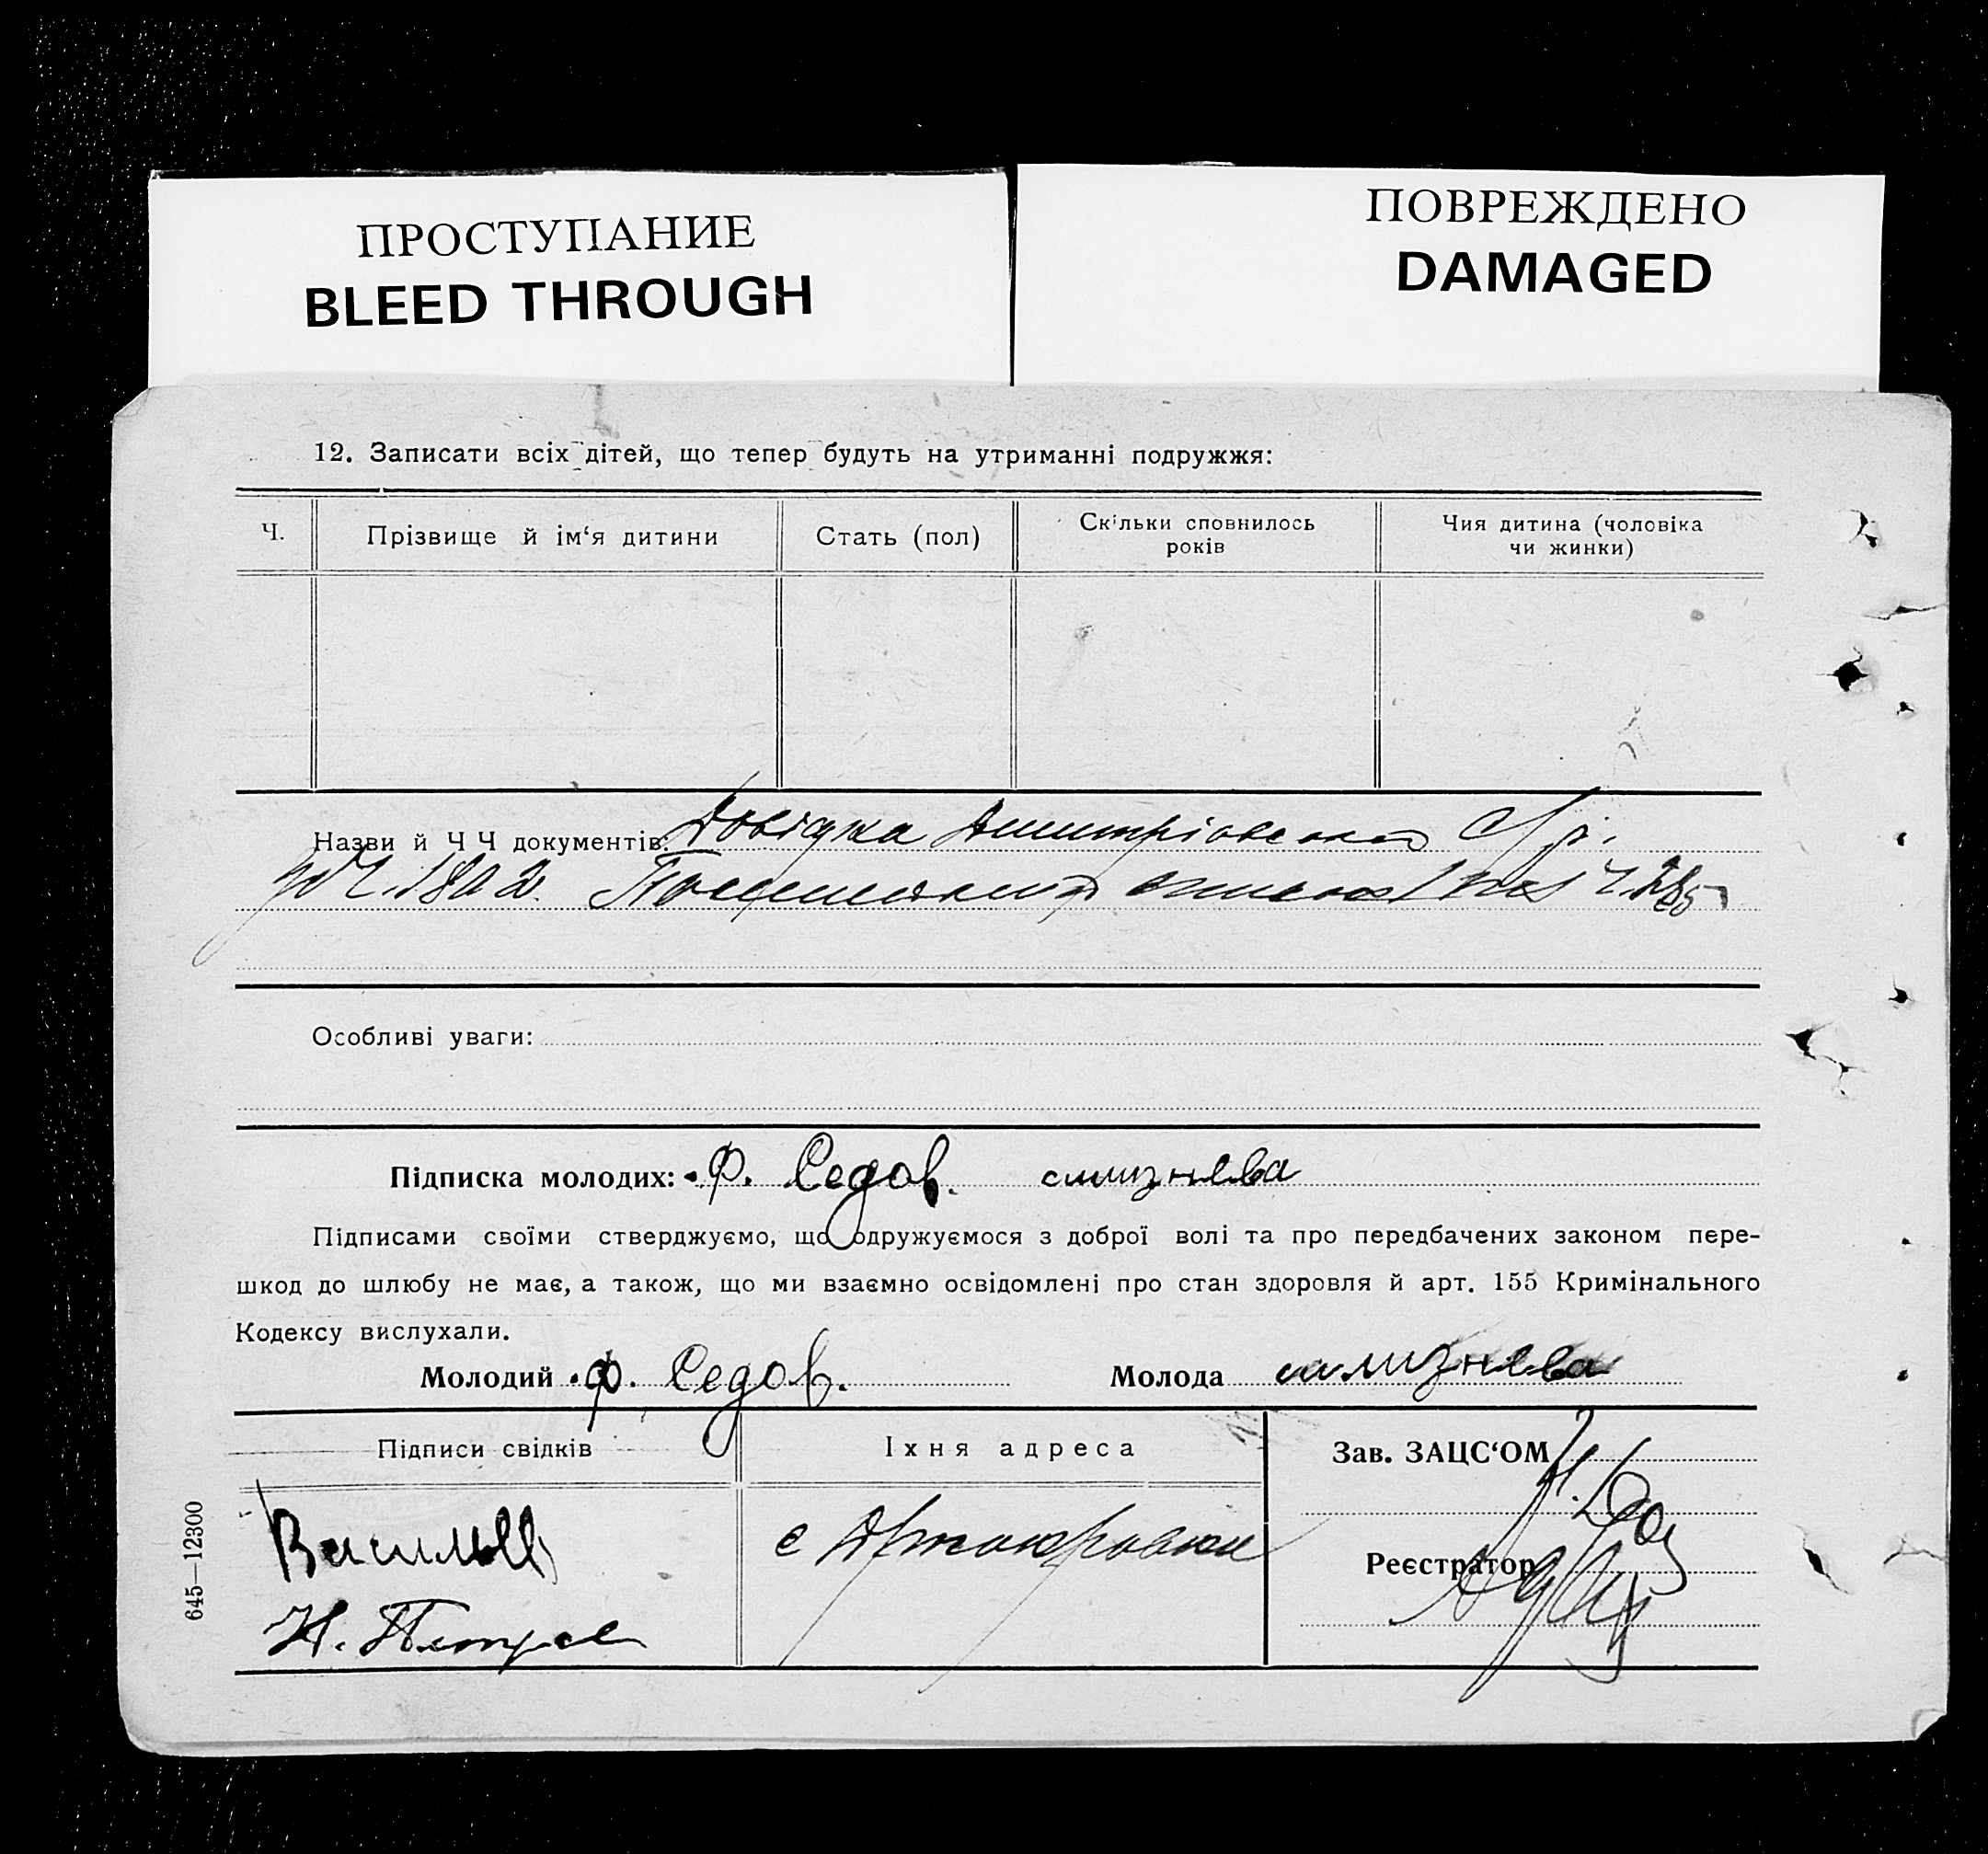 ПРОСТУПАНИЕ
BLEED THROUGH
ПОВРЕЖДЕНО
DAMAGED
12. Записати всіх дітей, що тепер будуть на утриманні подружжя:
Ч. Прізвище й ім‘я дитини Стать (пол) Скільки сповнилось років Чия дитина (чоловіка чи жинки)
Назви й Ч Ч документів: Довідка
Особливі уваги:
Підписка молодих: Ф. Седов.
Підписами своїми стверджуємо, що одружуємося з доброї волі та про передбачених законом пере-
шкод до шлюбу не має, а також, що ми взаємно освідомлені про стан здоровля й арт. 155 Кримінального
Кодексу вислухали.
Молодий Ф. Седов. Молода
Підписи свідків Їхня адреса Зав. ЗАЦС‘ОМ
Реєстратор
645—12300